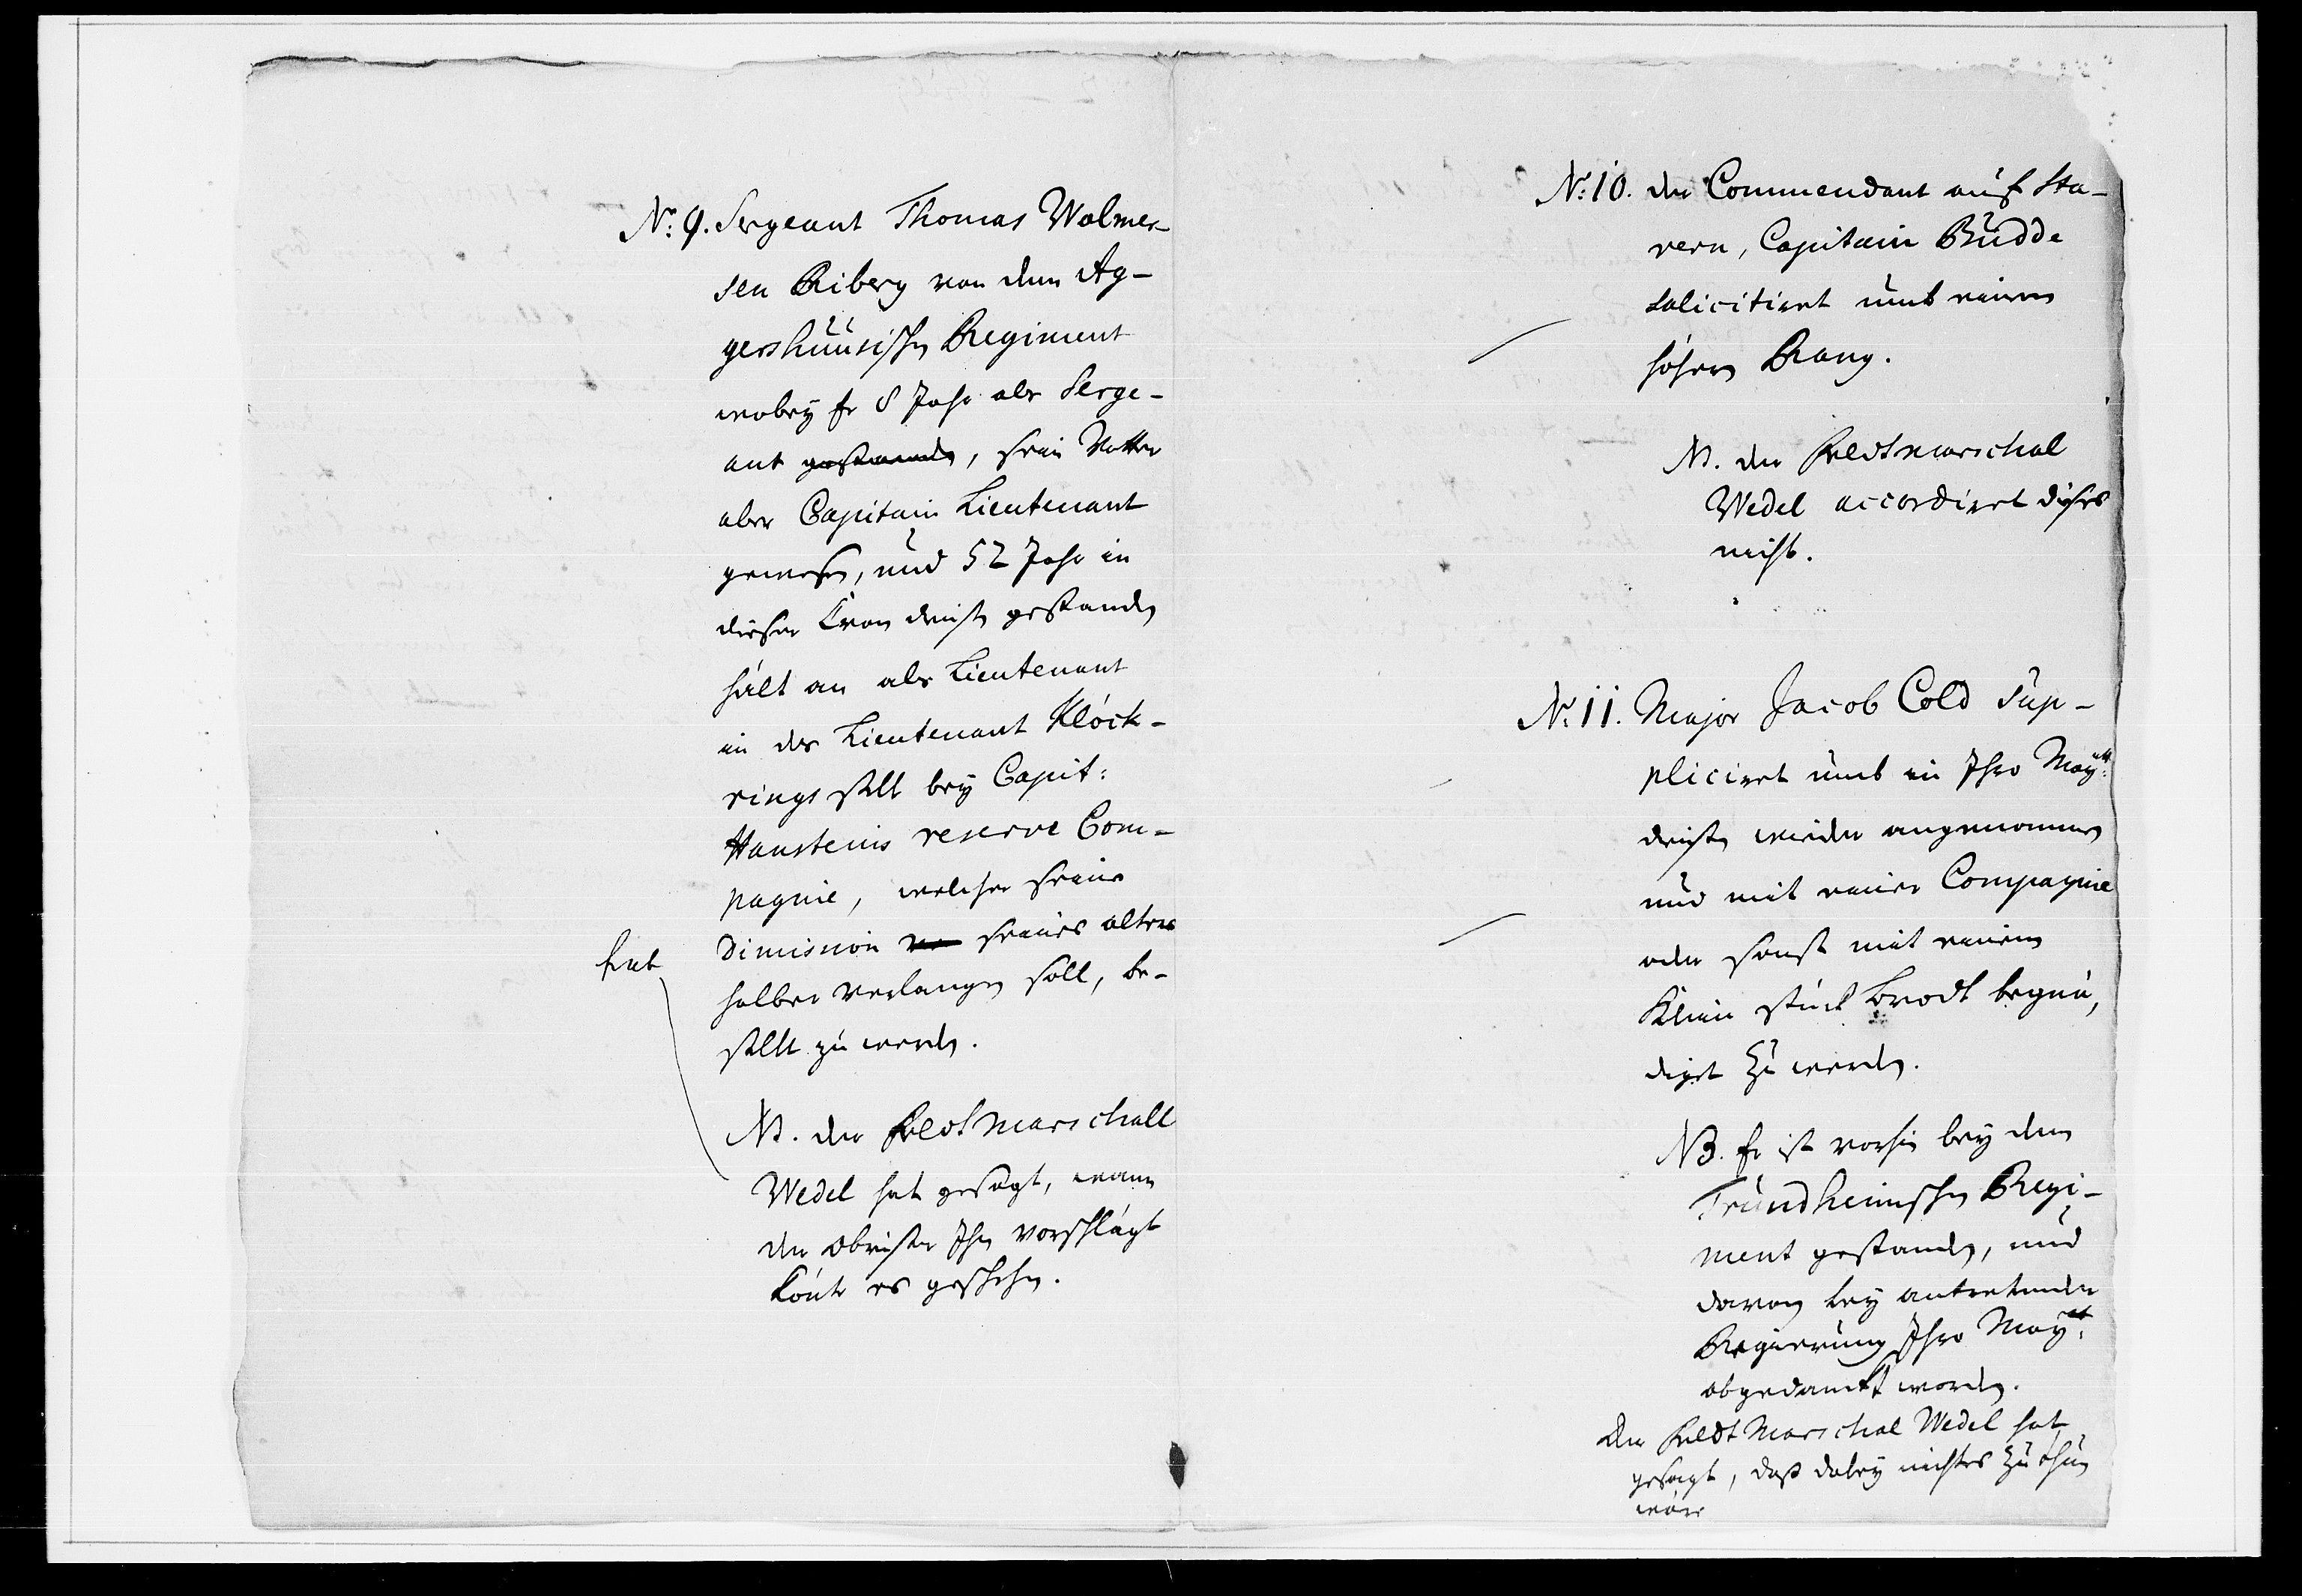 No: 9. Sergeant Thomas Wolmer-
sen Riberg von dem Ag-
gershuusischen Regiment
wobey Er 8 Jahr als Serge-
ant gestanden, sein Vatter
aber Capitain Lieutenant
gewesen, und 52 Jahr in
dieser Cron dienst gestanden
hält an als Lieutenant
in des Lieutenant Klöck-
rings stell bey Capit:
Hausteins reserve Com-
pagnie, welcher seine
Dimission seines alters
halber verlangen soll, be-
stelt zu werden.
hat
NB. der Feldtmarschall
Wedel hat gesagt, wann
der Obrister Ihn vorschlägt
könte es geschehen.
No: 10. der Commendant auf Sta-
vern, Capitain Budde
solicitiret umb einen
höhern Rang.
NB. der Feldtmarschal
Wedel accordiret dieses
nicht.
No: 11. Major Jacob Cold sup-
pliciret umb in Ihro Maytt:
dienste wieder angenommen
und mit einer Compagnie
oder sonst mit einem
klein stück Brodt begnä,
diget zu werden.
NB. Er ist vorhin bey dem
Trundheimschen Regi-
ment gestanden, und
davon bey antretender
Regierung Ihro Maytt:
abgedanckt worden.
Der Feldt Marschal Wedel hat
gesagt, daß dabey nichtes zu thun
wäre